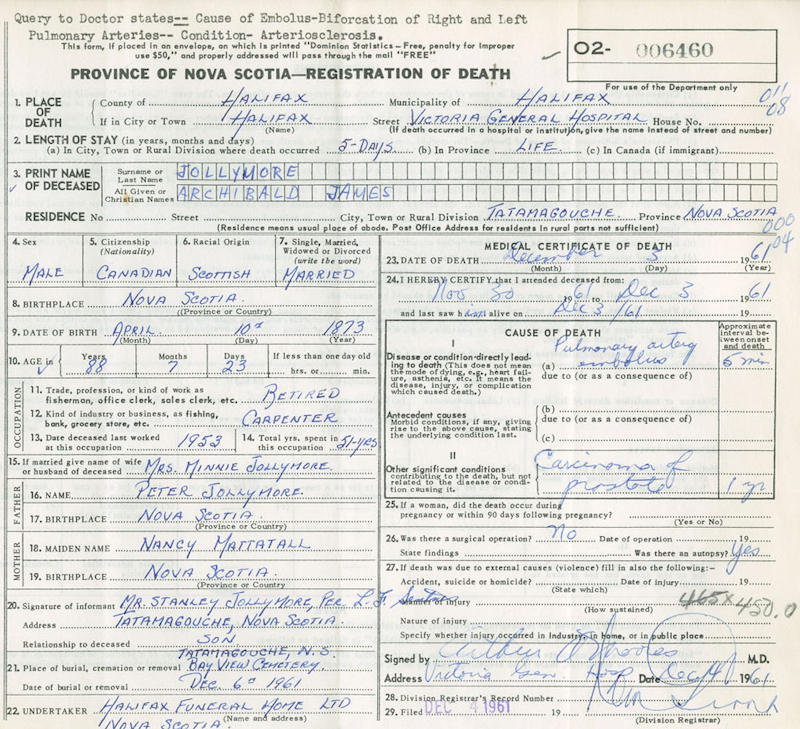 Query to Doctor states-- Cause of Embolus-Biforcation of Right and Left
Pulmonary Arteries-- Condition- Arteriosclerosis.
This form, if placed in an envelope, on which is printed "Dominion Statistics - Free, penalty for improper
use $50," and properly addressed will pass through the mail "FREE"
O2- 006460
PROVINCE OF NOVA SCOTIA—REGISTRATION OF DEATH
For use of the Department only
011
08
1. PLACE OF DEATH
County of HALIFAX Municipality of HALIFAX
If in City or Town HALIFAX Street VICTORIA GENERAL HOSPITAL House No.
(Name) (If death occurred in a hospital or institution, give the name instead of street and number)
2. LENGTH OF STAY (in years, months and days)
(a) In City, Town or Rural Division where death occurred 5-DAYS. (b) In Province LIFE (c) In Canada (if immigrant)
3. PRINT NAME OF DECEASED
Surname or Last Name JOLLYMORE
All Given or Christian Names ARCHIBALD JAMES
RESIDENCE No Street City, Town or Rural Division TATAMAGOUCHE. Province NOVA SCOTIA
(Residence means usual place of abode. Post Office Address for residents in rural parts not sufficient)
000
04
4. Sex MALE
5. Citizenship (Nationality) CANADIAN
6. Racial Origin SCOTTISH
7. Single, Married, Widowed or Divorced (write the word) MARRIED
8. BIRTHPLACE NOVA SCOTIA.
(Province or Country)
9. DATE OF BIRTH APRIL 10th 1873
(Month) (Day) (Year)
10. AGE in Years 88 Months 7 Days 23 If less than one day old hrs. or min.
OCCUPATION
11. Trade, profession, or kind of work as fisherman, office clerk, sales clerk, etc. RETIRED
12. Kind of industry or business, as fishing, bank, grocery store, etc. CARPENTER
13. Date deceased last worked at this occupation 1953
14. Total yrs. spent in this occupation 51-YRS
15. If married give name of wife or husband of deceased MRS. MINNIE JOLLYMORE
FATHER
16. NAME PETER JOLLYMORE.
17. BIRTHPLACE NOVA SCOTIA.
(Province or Country)
MOTHER
18. MAIDEN NAME NANCY MATTATALL
19. BIRTHPLACE NOVA SCOTIA.
(Province or Country)
20. Signature of informant MR. STANLEY JOLLYMORE, PER L. F.
Address TATAMAGOUCHE, NOVA SCOTIA.
Relationship to deceased SON
TATAMAGOUCHE, N.S.
21. Place of burial, cremation or removal BAY VIEW CEMETERY.
Date of burial or removal DEC. 6th 1961
22. UNDERTAKER HALIFAX FUNERAL HOME LTD
(Name and address)
NOVA SCOTIA.
MEDICAL CERTIFICATE OF DEATH
23. DATE OF DEATH December 3 1961
(Month) (Day) (Year)
24. I HEREBY CERTIFY that I attended deceased from:
Nov. 30 1961 to Dec 3 1961
and last saw h alive on Dec 3/61 19
CAUSE OF DEATH
Approximate interval between onset and death
I
Disease or condition directly leading to death (This does not mean the mode of dying, e.g., heart failure, asthenia, etc. It means the disease, injury, or complication which caused death.)
(a) Pulmonary artery embolus 5 min
due to (or as a consequence of)
Antecedent causes
Morbid conditions, if any, giving rise to the above cause, stating the underlying condition last.
(b)
due to (or as a consequence of)
(c)
II
Other significant conditions contributing to the death, but not related to the disease or condition causing it.
Carcinoma of prostate 1 yr
25. If a woman, did the death occur during pregnancy or within 90 days following pregnancy?
(Yes or No)
26. Was there a surgical operation? No Date of operation 19
State findings Was there an autopsy? Yes
27. If death was due to external causes (violence) fill in also the following:-
Accident, suicide or homicide? Date of injury 19
(State which)
Manner of injury
(How sustained)
465x 450.0
Nature of injury
Specify whether injury occurred in Industry, in home, or in public place
Signed by Arthur Rhodes M.D.
Address Victoria Gen Hosp Date Dec 4 1961
28. Division Registrar's Record Number
29. Filed DEC 4 1961 19
(Division Registrar)